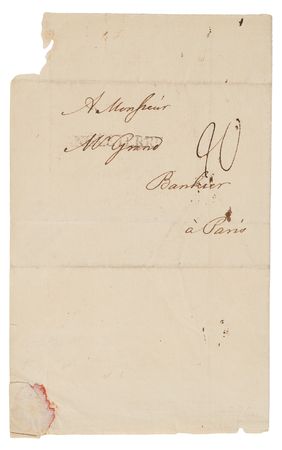 A Monsieur
Mr. Grand
Bankier
à Paris